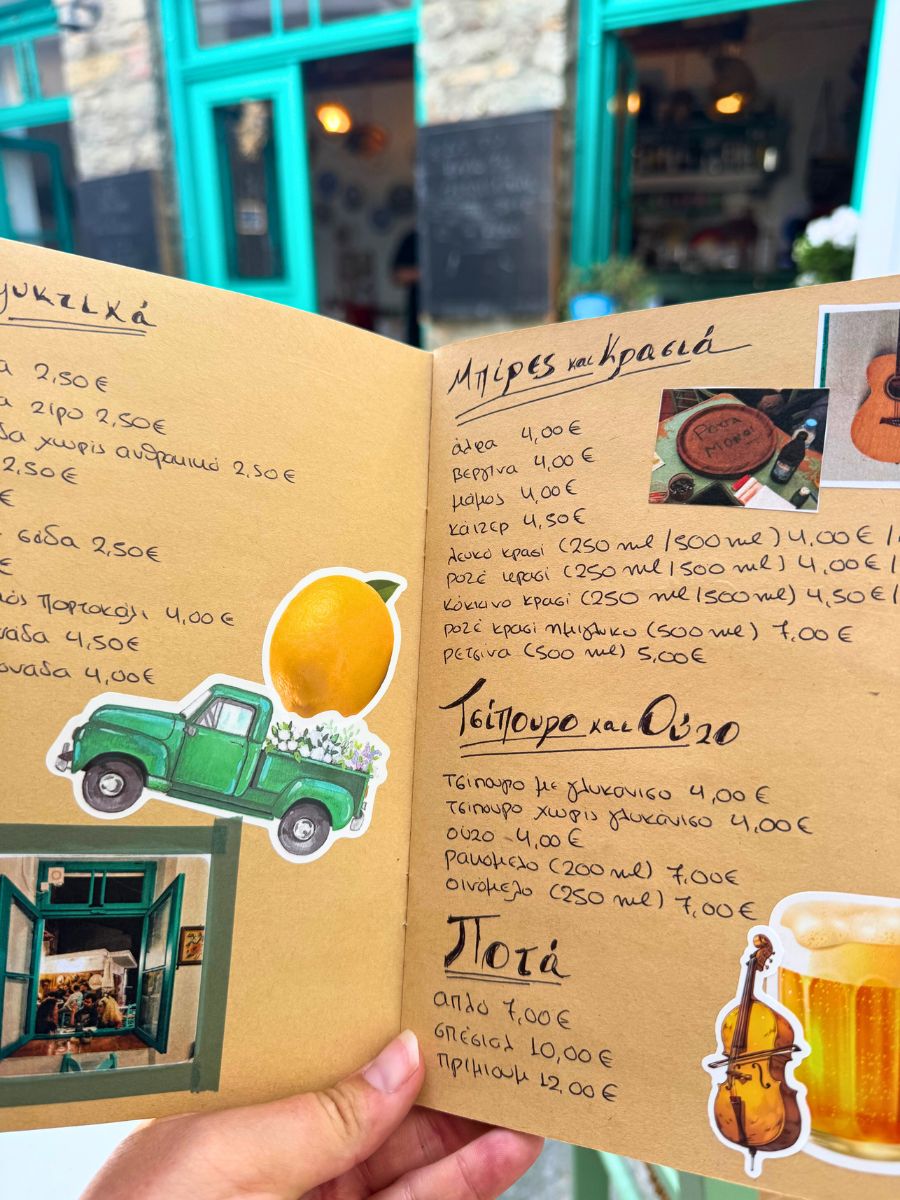 υκτικά
α 2,50€
α ζιρο 2,50€
δα χωρίς ανθρακικό 2,50€
2,50€
€
σόδα 2,50€
€
μός πορτοκάλι 4,00€
νάδα 4,50€
ονάδα 4,00€
Μπίρες και Κρασιά
άλφα 4,00€
βεργίνα 4,00€
μάμος 4,00€
κάιζερ 4,50€
λευκό κρασί (250 ml/500 ml) 4,00€/
ροζέ κρασί (250 ml/500 ml) 4,00€/
κόκκινο κρασί (250 ml/500 ml) 4,50€/
ροζέ κρασί ημίγλυκο (500 ml) 7,00€
ρετσίνα (500 ml) 5,00€
Τσίπουρο και Ούζο
τσίπουρο με γλυκάνισο 4,00€
τσίπουρο χωρίς γλυκάνισο 4,00€
ούζο 4,00€
ρακόμελο (200 ml) 7,00€
οινόμελο (250 ml) 7,00€
Ποτά
απλό 7,00€
σπέσιαλ 10,00€
πρίμιουμ 12,00€